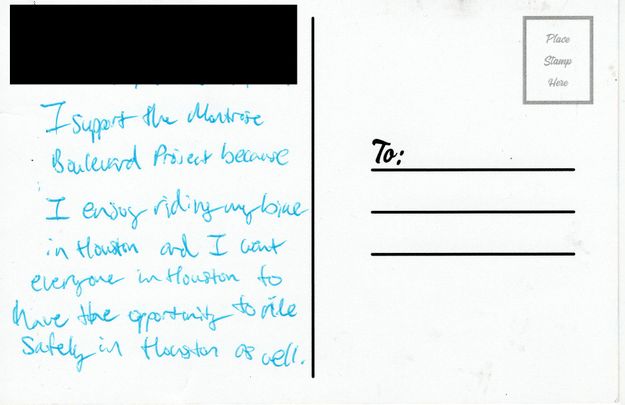 I support the Montrose
Boulevard Project because
I enjoy riding my bike
in Houston and I want
everyone in Houston to
have the opportunity to ride
Safely in Houston as well.
Place
Stamp
Here
To: